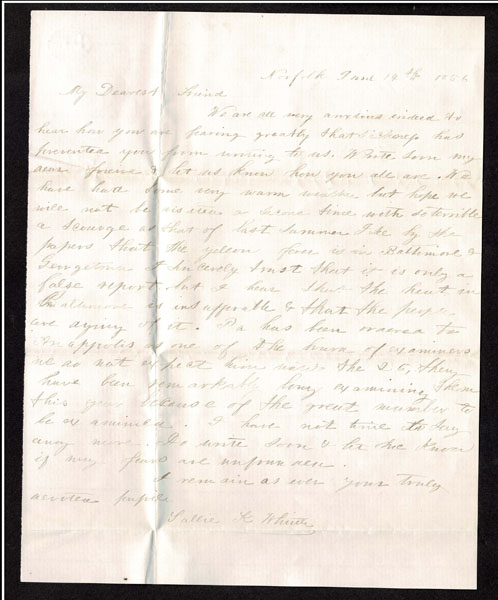 Norfolk June 19th 1856
My Dearest Friend
We are all very anxious indeed to
hear how you are fearing greatly that sickness has
prevented you from writing to us. Write soon my
dear friend & let us know how you all are. We
have had some very warm weather but hope we
will not be visited a second time with so terrible
a scourge as that of last summer I see by the
papers that the yellow fever is in Baltimore &
Georgetown I sincerely trust that it is only a
false report but I hear that the heat in
Baltimore is insufferable & that the people
are dying of it. Pa has been ordered to
Annapolis as one of the board of examiners
we do not expect him until the 25, they
have been remarkably long examining them
this year because of the great number to
be examined. I have not time to say
any more. Do write soon & let me know
if my fears are unfounded.
I remain as ever your truly
devoted pupil
Sallie K